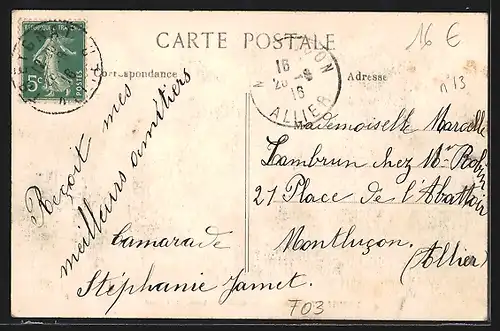 CARTE POSTALE
Correspondance
Adresse
16 €
n°13
5c
POSTES
16
28 -8
16
ALLIER
Mademoiselle Marcelle
Lambrun chez Mr Robin
21 Place de l'Abattoir
Montluçon.
(Allier)
Reçoit mes
meilleurs amitiers
Camarade
Stéphanie Jamet.
703